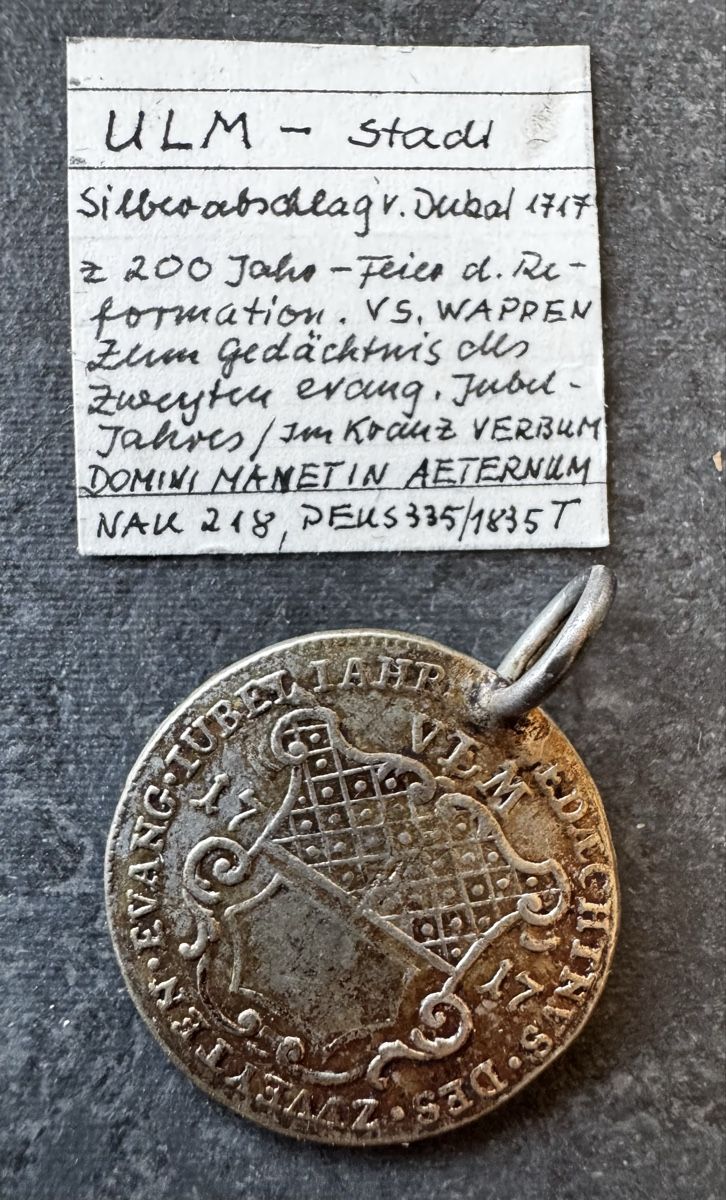 ULM - Stadt
Silberabschlag v. Dukat 1717
z 200 Jahr-Feier d. Re-
formation. VS. WAPPEN
Zum Gedächtnis des
Zweyten evang. Jubel-
Jahres/im Kranz VERBUM
DOMINI MANET IN AETERNUM
NAU 218, DEUS 335/1835 T
EDÆCHTNVS·DES·ZWEYTEN·EVANG·IÜBEL IAHR
VLM
17 17